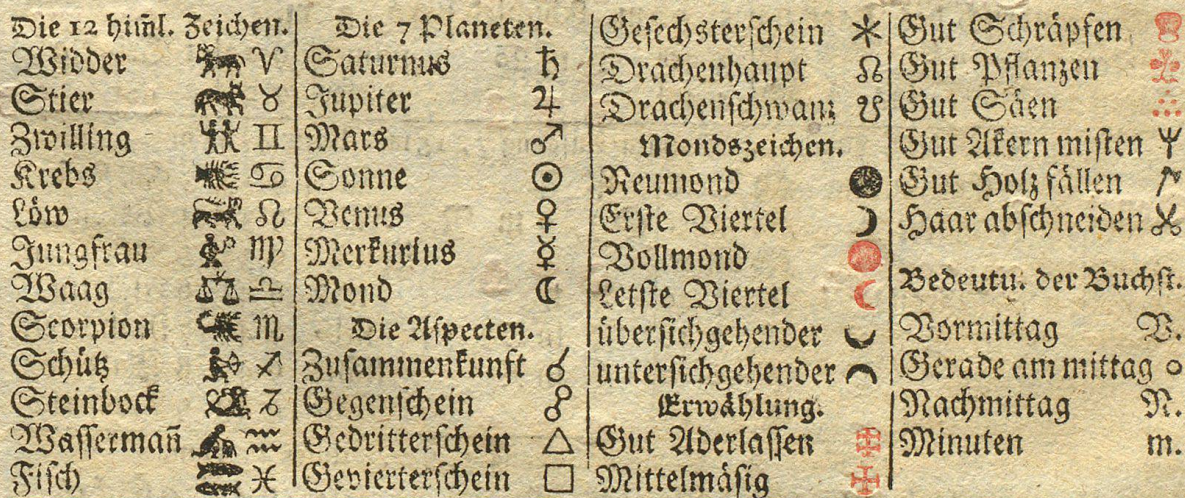 Die 12 him̃l. Zeichen.
Widder ♈
Stier ♉
Zwilling ♊
Krebs ♋
Löw ♌
Jungfrau ♍
Waag ♎
Scorpion ♏
Schütz ♐
Steinbock ♑
Wassermañ ♒
Fisch ♓
Die 7 Planeten.
Saturnus ♄
Jupiter ♃
Mars ♂
Sonne ☉
Venus ♀
Merkurius ☿
Mond ☾
Die Aspecten.
Zusammenkunft ☌
Gegenschein ☍
Gedritterschein △
Gevierterschein □
Gesechsterschein ⚹
Drachenhaupt ☊
Drachenschwanz ☋
Mondszeichen.
Neumond
Erste Viertel
Vollmond
Letste Viertel
übersichgehender
untersichgehender
Erwählung.
Gut Aderlassen
Mittelmäsig
Gut Schräpfen
Gut Pflanzen
Gut Säen
Gut Akern misten
Gut Holz fällen
Haar abschneiden
Bedeutu. der Buchst.
Vormittag V.
Gerade am mittag o
Nachmittag N.
Minuten m.